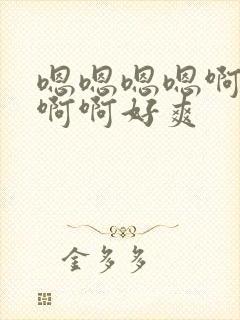 嗯嗯嗯嗯啊
啊啊好爽
金多多